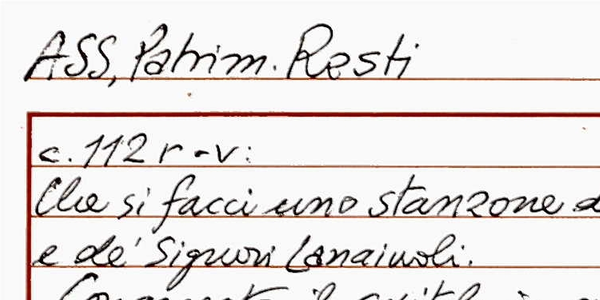 ASS, Patrim. Resti
c. 112 r - v:
Che si facci uno stanzone d
e de' Signori Lanaiuoli.
il